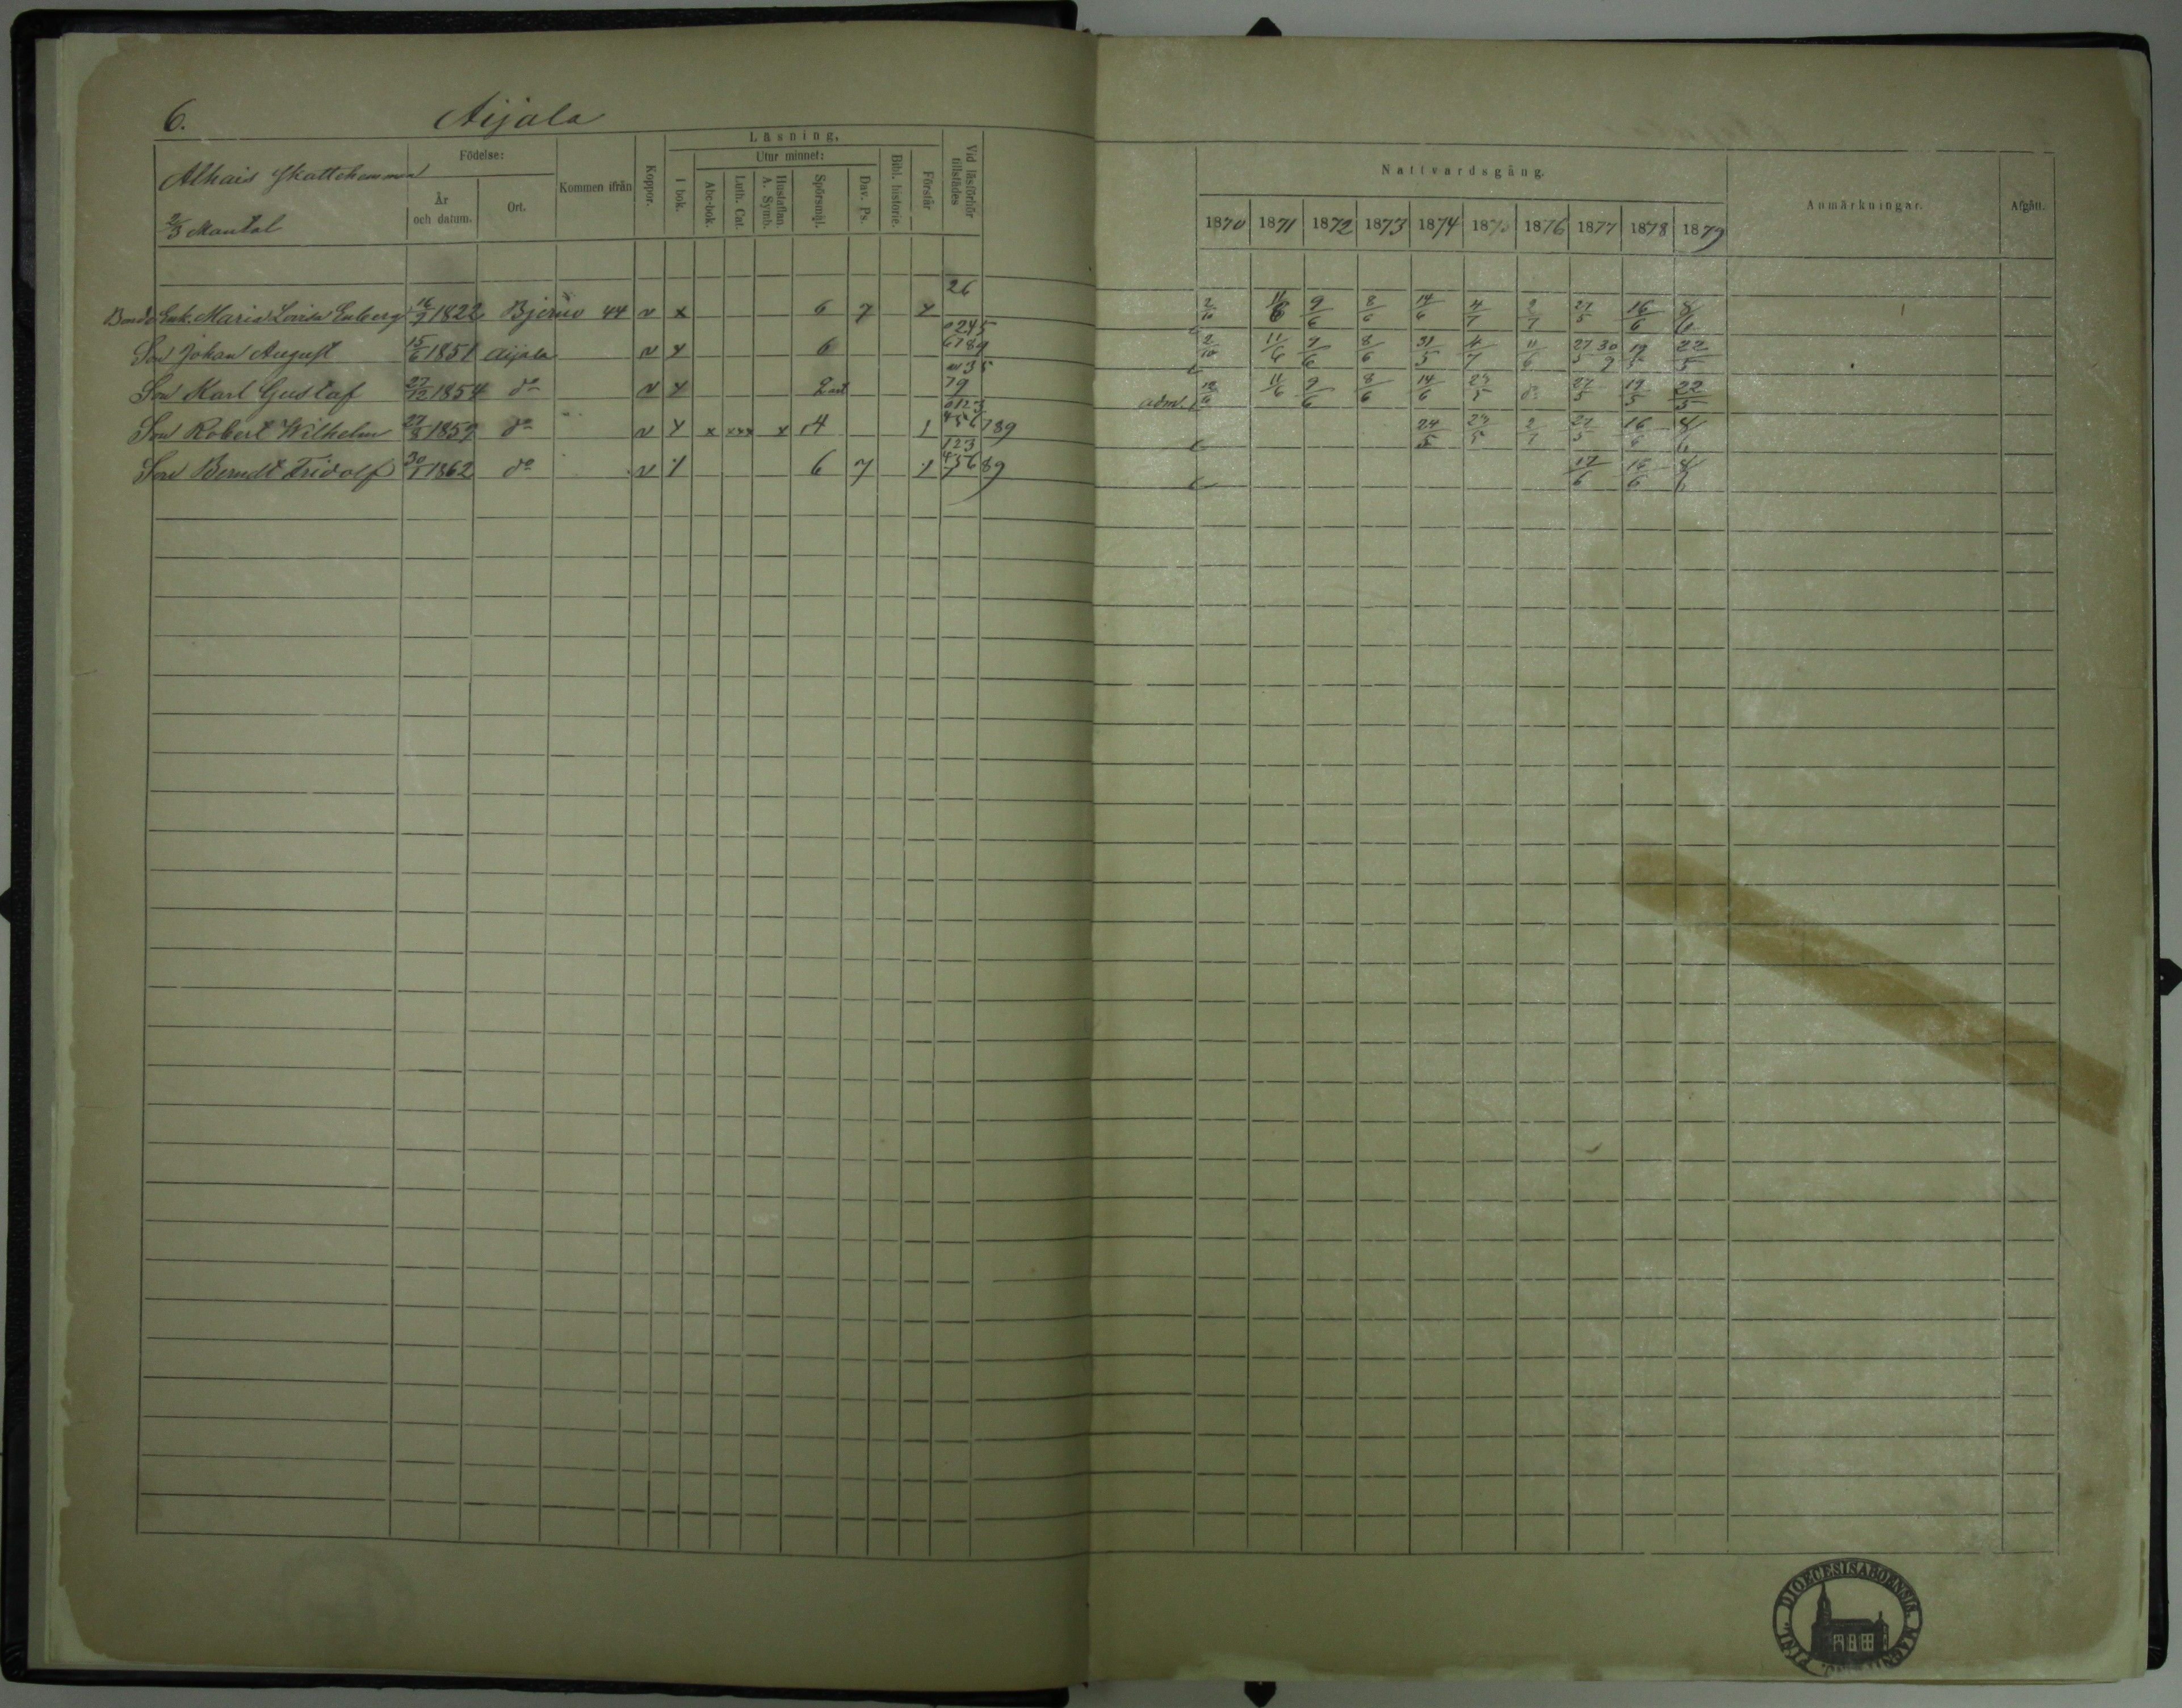 6. Aijala
Läsning,
Alhais Skattehemman
Födelse:
Kommen ifrån
Koppor.
I bok.
Utur minnet:
Bibl. historie.
Förstår
Vid läsförhör tillstädes
2/3 Mantal
År och datum.
Ort.
Abc-bok.
Luth. Cat.
Hustaflan. A. Symb.
Spörsmål.
Dav. Ps.
Nattvardsgång.
Anmärkningar.
Afgått.
1870 1871 1872 1873 1874 1875 1876 1877 1878 1879
26
Bonde Enk. Maria Lovisa Enberg 16/9 1822 Bjerno 44 v x 6 7 2/10 11/6 9/6 8/6 14/6 4/7 2/7 27/5 16/6 8/6
0245
Son Johan August 15/6 1851 Aijala v 6 6789 2/10 11/6 8/6 31/5 4/7 11/6 27/5 30/9 19/5 22/5
35
Son Karl Gustaf 27/12 1854 do v 79 adm. 11/6 9/6 8/6 14/6 27/5 19/5 22/5
0123
Son Robert Wilhelm 27/8 1859 do v x xxx x 4 456789 24/5 2/7 27/5 16/6
123
Son Berndt Fridolf 30/1 1862 do v 6 7 456 789 17/6 16/6
FINL. DIOECESISABOENSIS. MAGNI